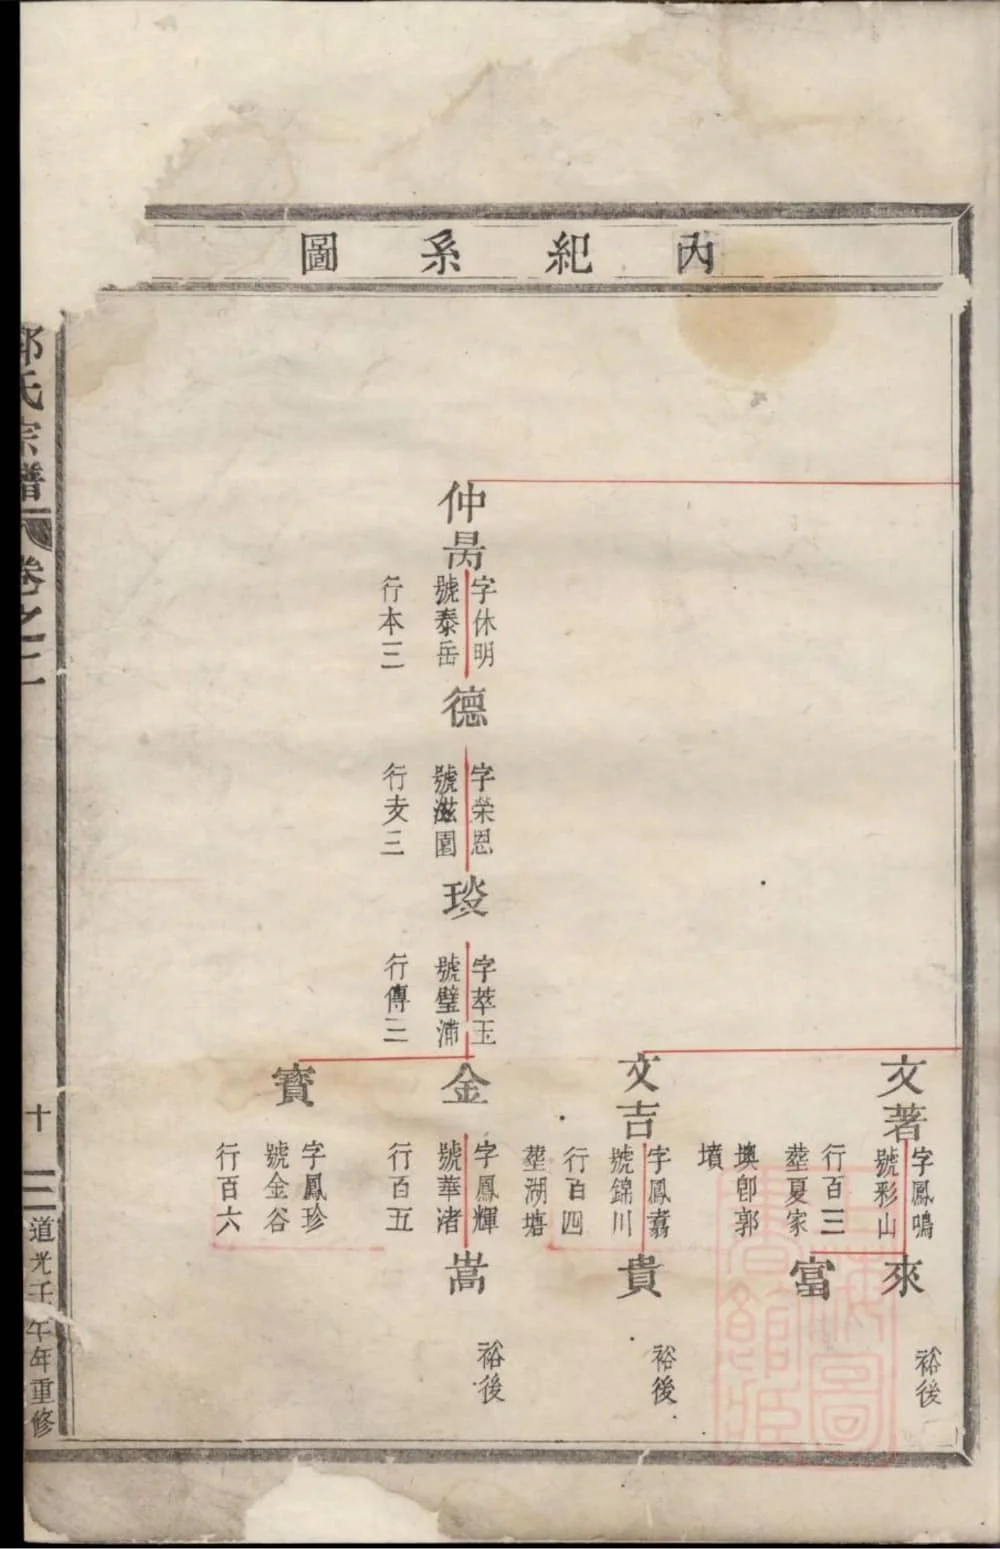 內紀系圖
文著
字鳳鳴
號彩山
行百三
塟夏家
墺卽郭
墳
來
裕後
富
文吉
字鳳翥
號錦川
行百四
塟湖塘
貴
裕後
仲昺
字休明
號泰岳
行本三
德
字榮恩
號滋園
行友三
琰
字萃玉
號璧浦
行傳三
金
字鳳輝
號華渚
行百五
嵩
裕後
寶
字鳳珍
號金谷
行百六
氏宗譜
卷之二
十三
道光壬午年重修